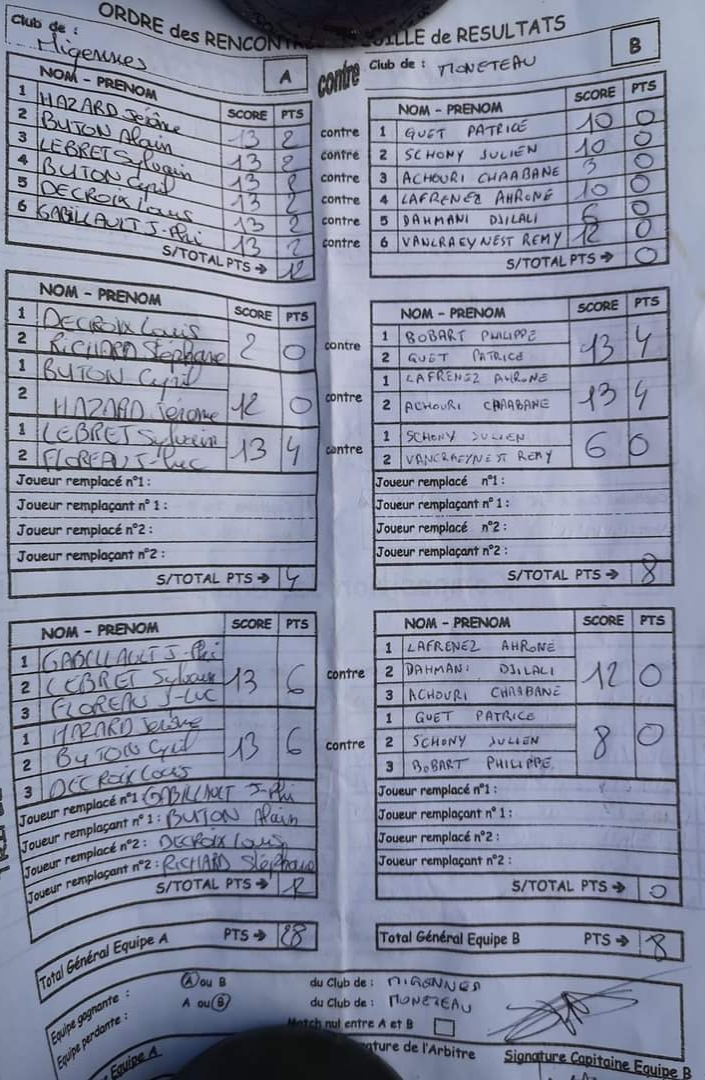 ORDRE des RENCONT
UILLE de RESULTATS
Club de : Migennes
A
contre
Club de : MONETEAU
B
NOM - PRENOM SCORE PTS
1 HAZARD Jérôme 13 2
2 BUTON Alain 13 2
3 LEBRET Sylvain 13 2
4 BUTON Cyril 13 2
5 DECROIX Louis 13 2
6 GABILLAULT J-Phi 13 2
S/TOTAL PTS → 12
contre
contre
contre
contre
contre
contre
NOM - PRENOM SCORE PTS
1 GUET PATRICE 10 0
2 SCHONY JULIEN 10 0
3 ACHOURI CHAABANE 3 0
4 LAFRENEZ AHRONE 10 0
5 DAHMANI DJILALI 6 0
6 VANCRAEYNEST REMY 12 0
S/TOTAL PTS → 0
NOM - PRENOM SCORE PTS
1 DECROIX Louis
2 RICHARD Stéphane 2 0
1 BUTON Cyril
2 HAZARD Jérome 12 0
1 LEBRET Sylvain
2 FLOREAU J-Luc 13 4
Joueur remplacé n°1 :
Joueur remplaçant n° 1 :
Joueur remplacé n°2 :
Joueur remplaçant n°2 :
S/TOTAL PTS → 4
contre
contre
contre
NOM - PRENOM SCORE PTS
1 BOBART PHILIPPE
2 GUET PATRICE 13 4
1 LAFRENEZ AHRONE
2 ACHOURI CHAABANE 13 4
1 SCHONY JULIEN
2 VANCRAEYNEST REMY 6 0
Joueur remplacé n°1 :
Joueur remplaçant n° 1 :
Joueur remplacé n°2 :
Joueur remplaçant n°2 :
S/TOTAL PTS → 8
NOM - PRENOM SCORE PTS
1 GABILLAULT J-Phi
2 LEBRET Sylvain 13 6
3 FLOREAU J-LUC
1 HAZARD Jérôme
2 BUTON Cyril 13 6
3 DECROIX Louis
Joueur remplacé n°1 GABILLAULT J-Phi
Joueur remplaçant n° 1 : BUTON Alain
Joueur remplacé n°2 : DECROIX Louis
Joueur remplaçant n°2 : RICHARD Stéphane
S/TOTAL PTS → 12
contre
contre
NOM - PRENOM SCORE PTS
1 LAFRENEZ AHRONE
2 DAHMANI DJILALI 12 0
3 ACHOURI CHAABANE
1 GUET PATRICE
2 SCHONY JULIEN 8 0
3 BOBART PHILIPPE
Joueur remplacé n°1 :
Joueur remplaçant n° 1 :
Joueur remplacé n°2 :
Joueur remplaçant n°2 :
S/TOTAL PTS → 0
Total Général Equipe A PTS → 28
Total Général Equipe B PTS → 8
Equipe gagnante : A ou B du Club de : MIGENNES
Equipe perdante : A ou B du Club de : MONETEAU
Match nul entre A et B
Equipe A
ature de l'Arbitre
Signature Capitaine Equipe B